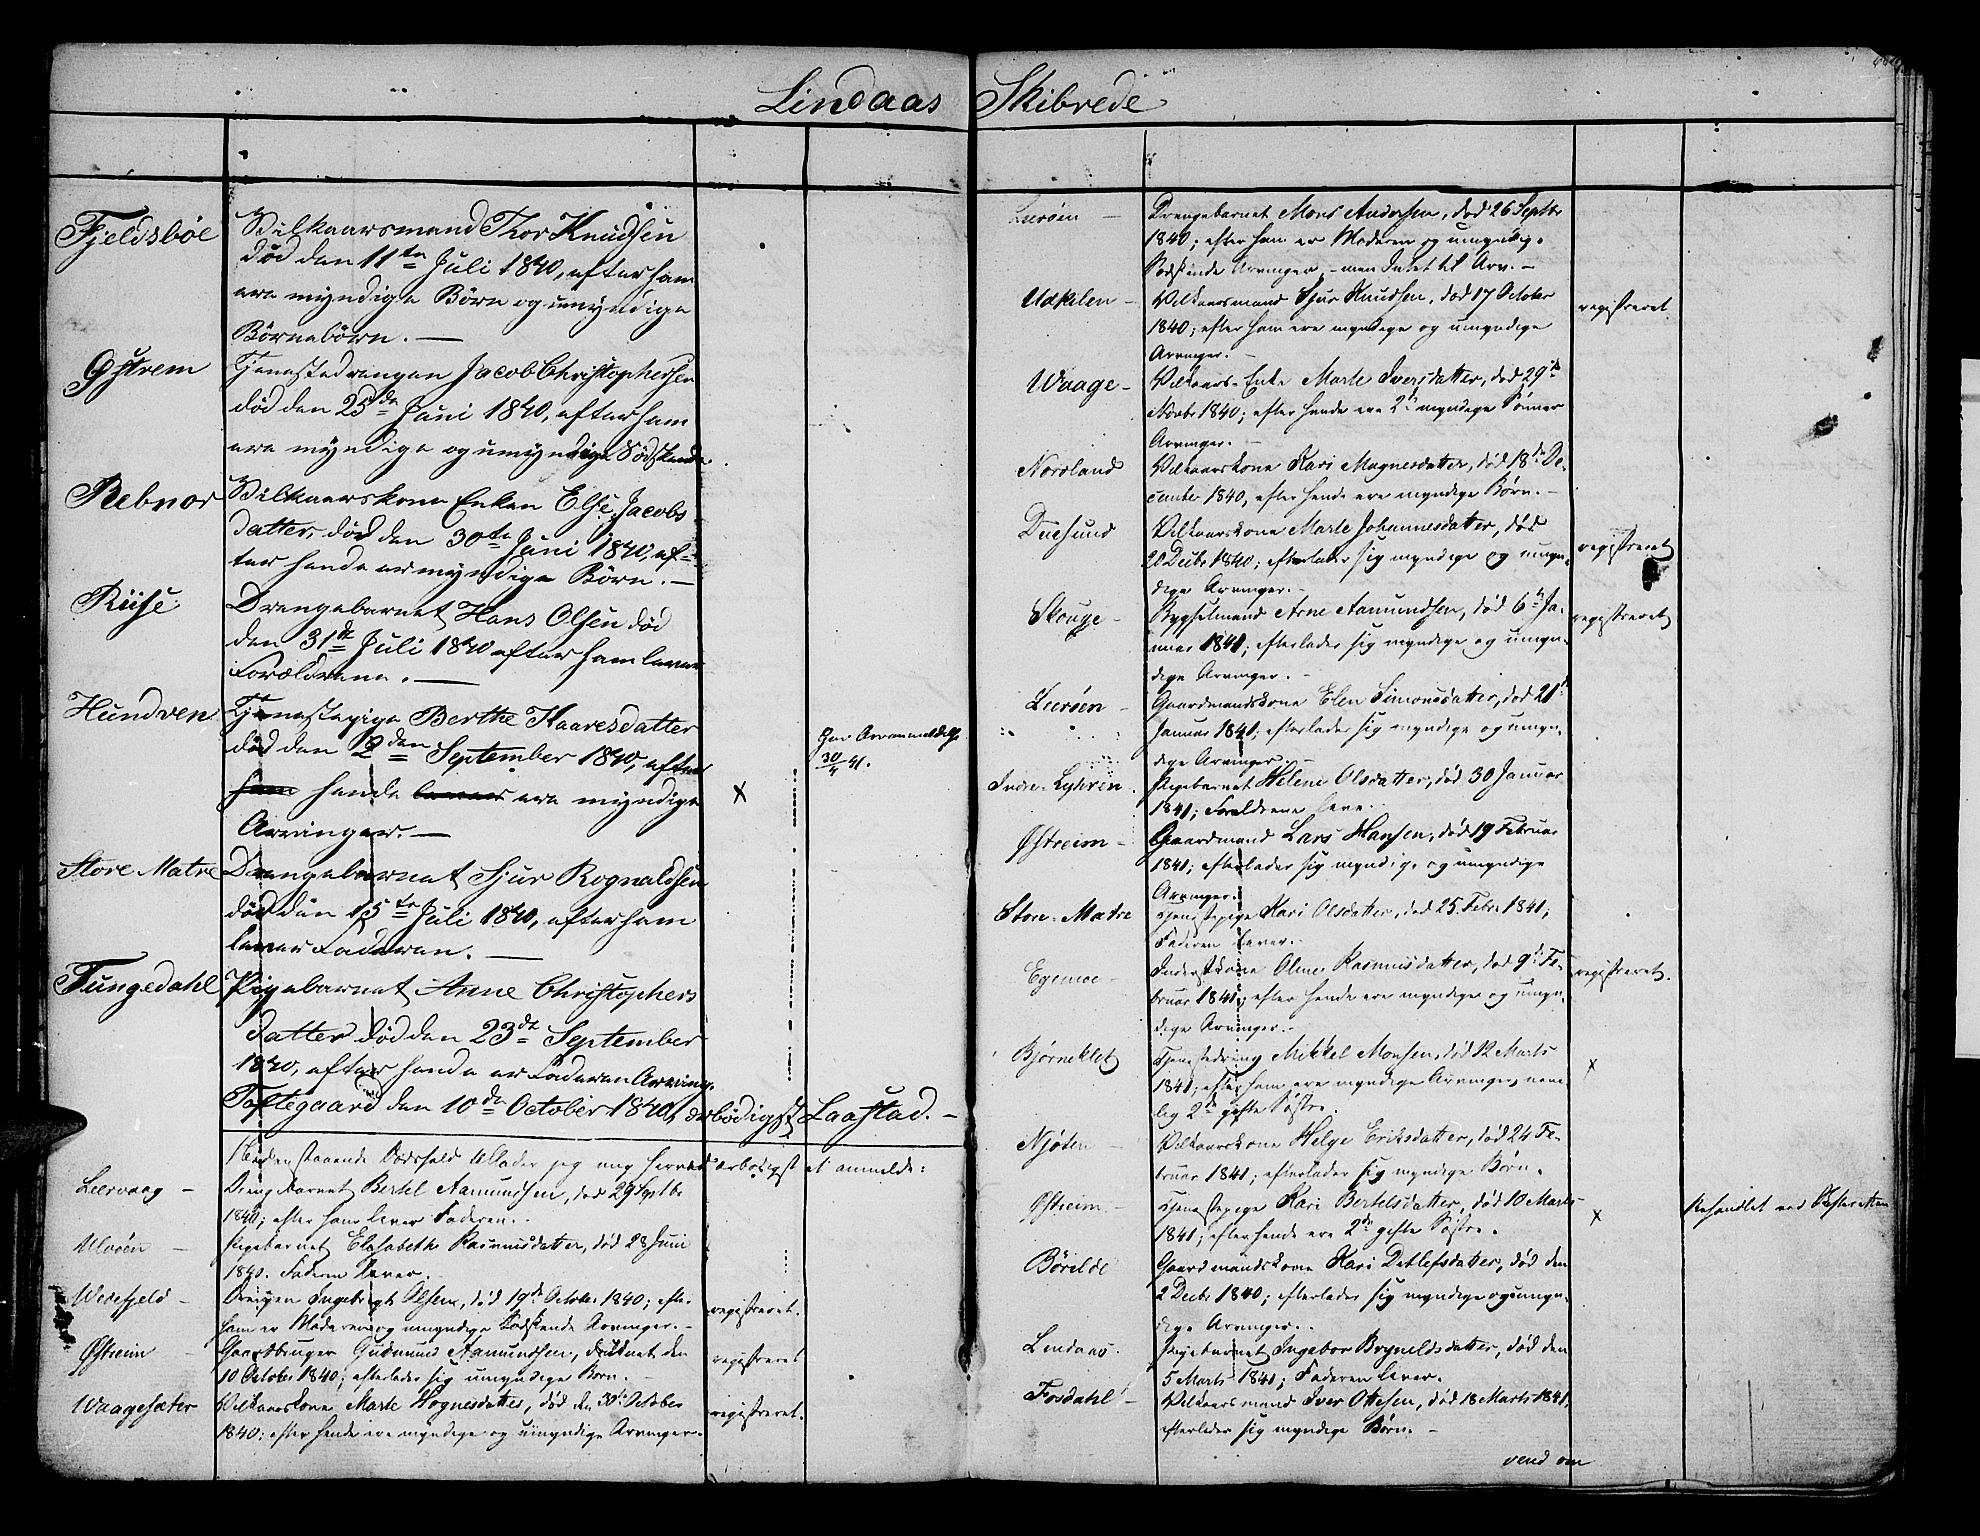 Lindaas Skibrede
Fjeldsbøe
Vilkaarsmand Thor Knudsen
død den 11te Juli 1840, efter ham
ere myndige Børn og umyndige
Børnebørn. —
Østrem
Tjenestedrengen Jacob Christophersen
død den 25de Juni 1840, efter ham
ere myndige og umyndige Sødskende
Rebnor
Vilkaarskone Enken Else Jacobs
datter, død den 30te Juni 1840, ef-
ter hende er myndige Børn. —
Riise
Drengebarnet Hans Olsen død
den 31te Juli 1840 efter ham lever
Forældrene. —
Hundven
Tjenestepige Berthe Haaresdatter
død den 12den September 1840, efter
ham hende lever ere myndige
Arvinger. —
x
30/4 41.
Store Matre
Drengebarnet Sjur Rognaldsen
død den 15te Juli 1840, efter ham
lever Faderen. —
Tungedahl
Pigebarnet Anne Christophers
datter død den 23de September
1840, efter hende er Faderen Arving.
Toftegaard den 10de October 1840, ærbødigst Laastad. —
Nedenstaaende Dødsfald tillader jeg mig herved ærbødigst at anmelde:
Leervaag —
Drengebarnet Bertel Aamundsen, død 29 Septbr
1840; efter ham lever Faderen. —
Ulvøen —
Pigebarnet Elisabeth Rasmusdatter, død 28 Juni
1840. Faderen lever.
Wedefjeld —
Drengen Ingebrigt Olsen, død 19de October 1840; efter
ham er Moderen og umyndige Sødskende Arvinger. —
registreret.
Østreim —
Gaardbruger Gudmund Aamundsen, druknet den
10 October 1840; efterlader sig umyndige Børn. —
registreret
Waagesæter
Vilkaarskone Marte Hognesdatter, død den 30te October
1840; efter hende ere myndige og umyndige Arvinger.
registreret.
Lurøen —
Drengebarnet Mons Andersen, død 26 Septbr
1840; efter ham er Moderen og umyndig.
Sødskende Arvinger, — men Intet til Arv. —
Udkilen —
Vilkaarsmand Sjur Knudsen, død 17 October
1840; efter ham ere myndige og umyndige
Arvinger. —
registreret.
Waage —
Vilkaars-Enke Marte Iversdatter, død 29de
Novbr 1840; efter hende ere 2de myndige Sønner
Arvinger. —
Nordland
Vilkaarskone Kari Magnesdatter, død 18de De-
cember 1840, efter hende ere myndige Børn. —
Duesund
Vilkaarskone Marte Johannesdatter, død
20 Decbr 1840; efterlader sig myndige og umyn-
dige Arvinger. —
registreret
Skouge —
Bygselmand Arne Aamundsen, død 6te Ja-
nuar 1841; efterlader sig myndige og umyn-
dige Arvinger. —
registreret
Lurøen —
Gaardmandskone Elen Simonsdatter, død 21de
Januar 1841; efterlader sig myndige og umyn-
dige Arvinger. —
Indre-Lyhren.
Pigebarnet Helene Olsdatter, død 30 Januar
1841; Forældrene leve.
Østreim —
Gaardmand Lars Hansen, død 19 Februar
1841; efterlader sig myndige og umyndige
Arvinger.
Store-Matre
Tjenestepige Kari Olsdatter, død 25 Febr 1841;
Faderen lever. —
Egemoe —
Inderstkone Oline Rasmusdatter, død 9de Fe-
bruar 1841; efter hende ere myndige og umyn-
dige Arvinger. —
registreret.
Bjørneklet
Tjenestedreng Mikkel Monsen, død 12 Marts
1841; efter ham ere myndige Arvinger, nem-
lig 2de gifte Søstre.
x
Njøten —
Vilkaarskone Helge Eriksdatter, død 24 Fe-
bruar 1841; efterlader sig myndige Børn.
Østreim. —
Tjenestepige Kari Bertelsdatter, død 10 Marts
1841; efter hende ere 2de gifte Søstre.
x
Behandlet ved
Børilde
Gaardmandskone Kari Detlefsdatter, død den
2 Decbr 1840; efterlader sig myndige og umyn-
dige Arvinger. —
Lindaas.
Pigebarnet Ingebor Brynildsdatter, død den
5 Marts 1841; Faderen lever.
Fosdahl —
Vilkaarsmand Iver Ottesen, død 18 Marts 1841,
efterlader sig myndige Børn. —
vend om